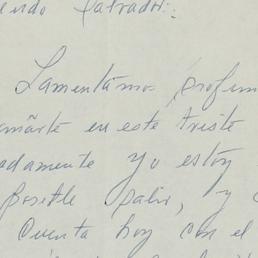 endo Salvador:
Lamentamos profun
añarte en este triste
adamente yo estoy
posible salir, y
Cuenta hoy con el